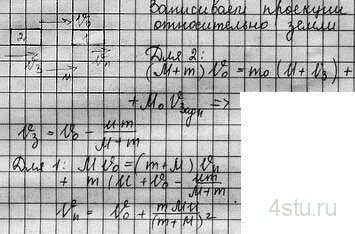 Записываем проекции
относительно земли
v₀
2 1
v₃ v_n
u
Для 2:
(M+m) v₀ = m₀ (U + v₃) +
+ M₀ v₃адн =>
v₃ = v₀ - um/M+m
Для 1: M v₀ = (m+M) v_n
+ m (U + v₀ - um/M+m)
v_n = v₀ + mMu/(m+M)²
4stu.ru